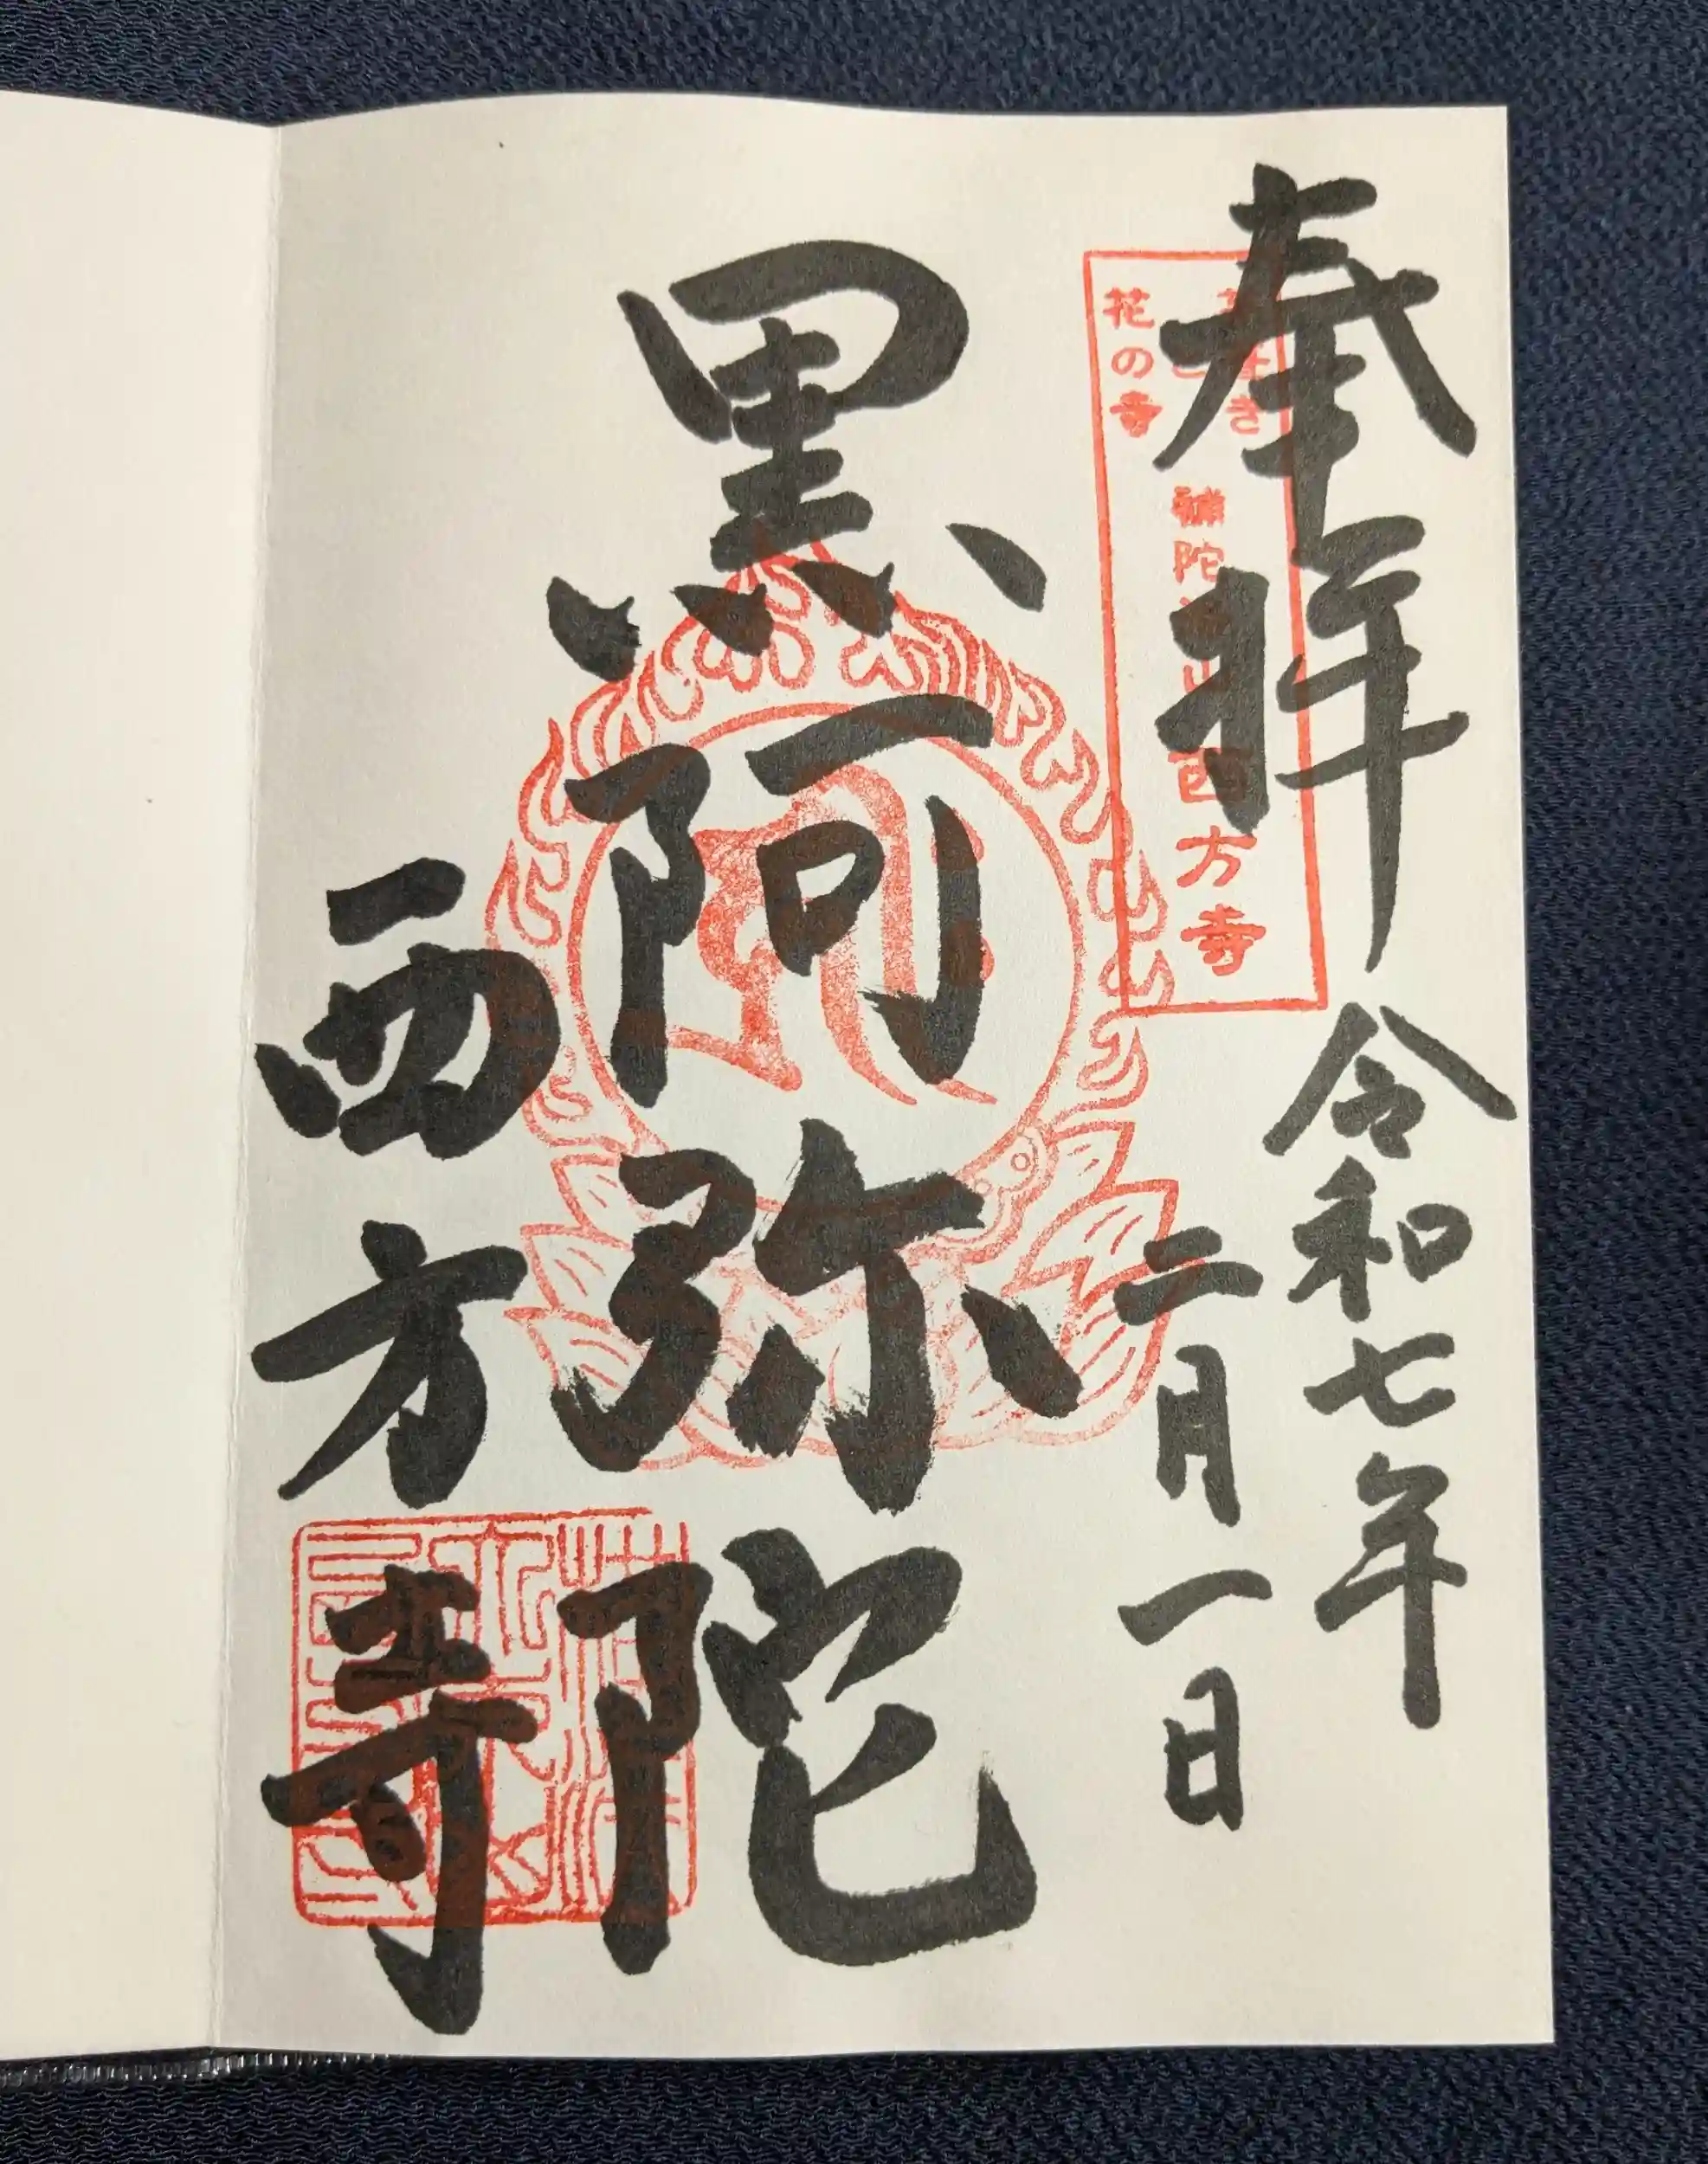 奉拝
令和七年
二月一日
花の寺
補陀洛山西方寺
黒阿弥陀
西方寺